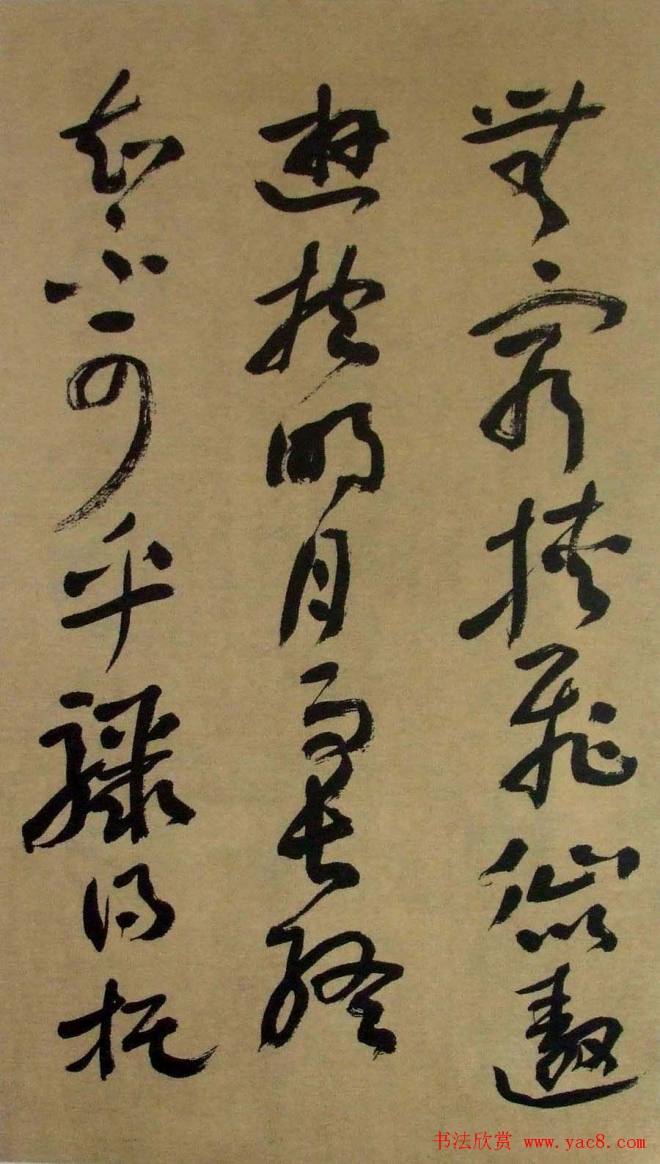 無窮挾飛仙以遨
遊抱明月而長終
知不可乎驟得托
书法欣赏 www.yac8.com